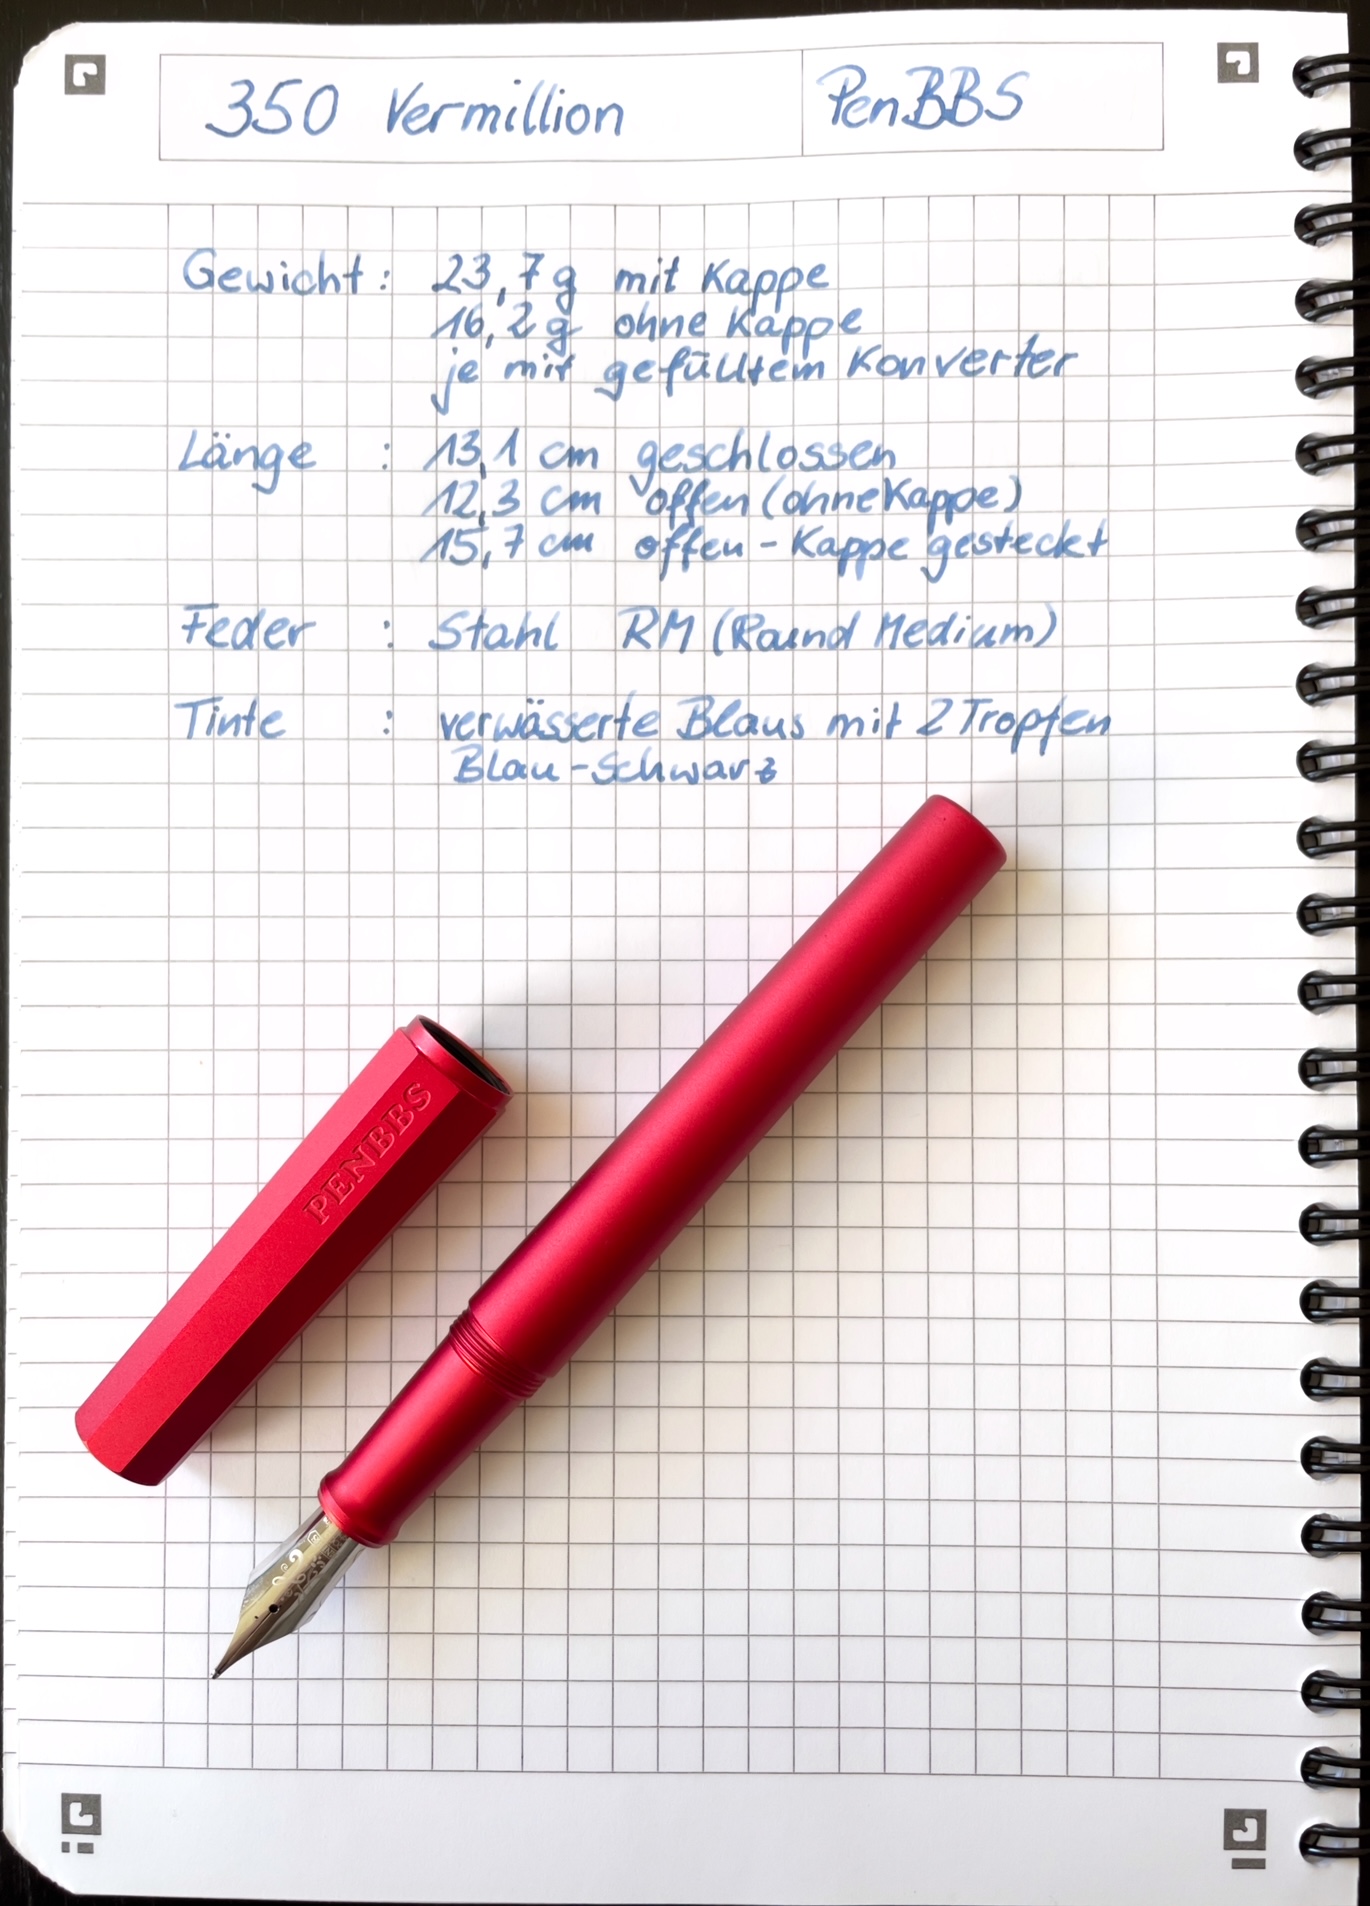 350 Vermillion
PenBBS
Gewicht : 23,7 g mit Kappe
16,2 g ohne Kappe
je mit gefülltem Konverter
Länge : 13,1 cm geschlossen
12,3 cm offen (ohne Kappe)
15,7 cm offen - Kappe gesteckt
Feder : Stahl RM (Round Medium)
Tinte : verwässerte Blaus mit 2 Tropfen
Blau-Schwarz
PENBBS